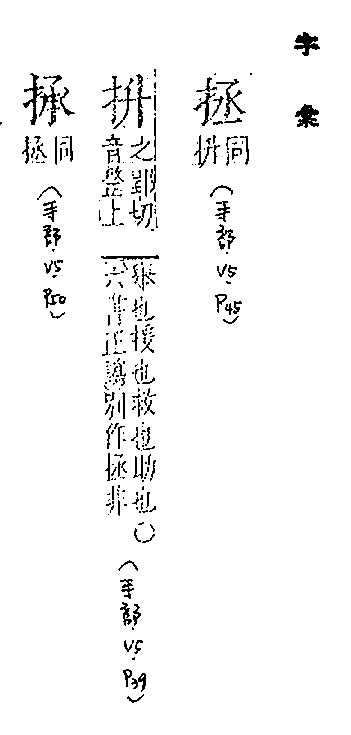 字彙
拯
同抍
(手部.V5.P45)
抍
之郢切
音整上
舉也援也救也助也〇
六書正譌別作拯非
(手部.V5.P39)
㨋
同拯
(手部.V5.P50)